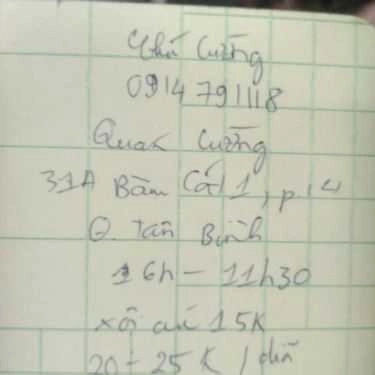 Chú Cường
0914 791118
Quán Cường
31A Bàu Cát 1, p.14
Q. Tân Bình
16h - 11h30
xôi 15K
20 - 25K / dĩa